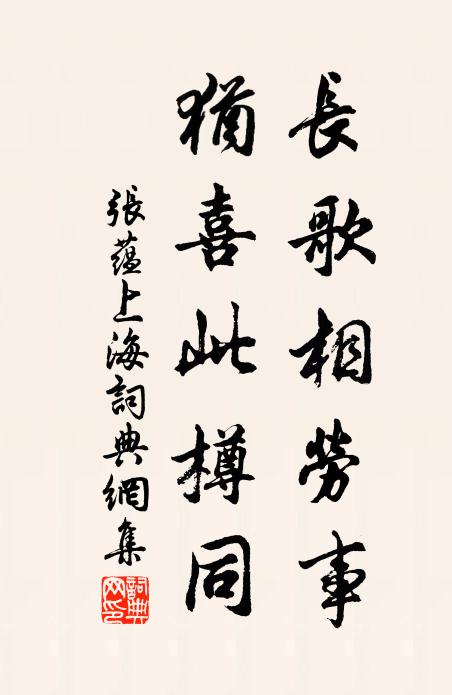 長歌相勞事
猶喜此樽同
張蘊上海詞典網集
詞典网印